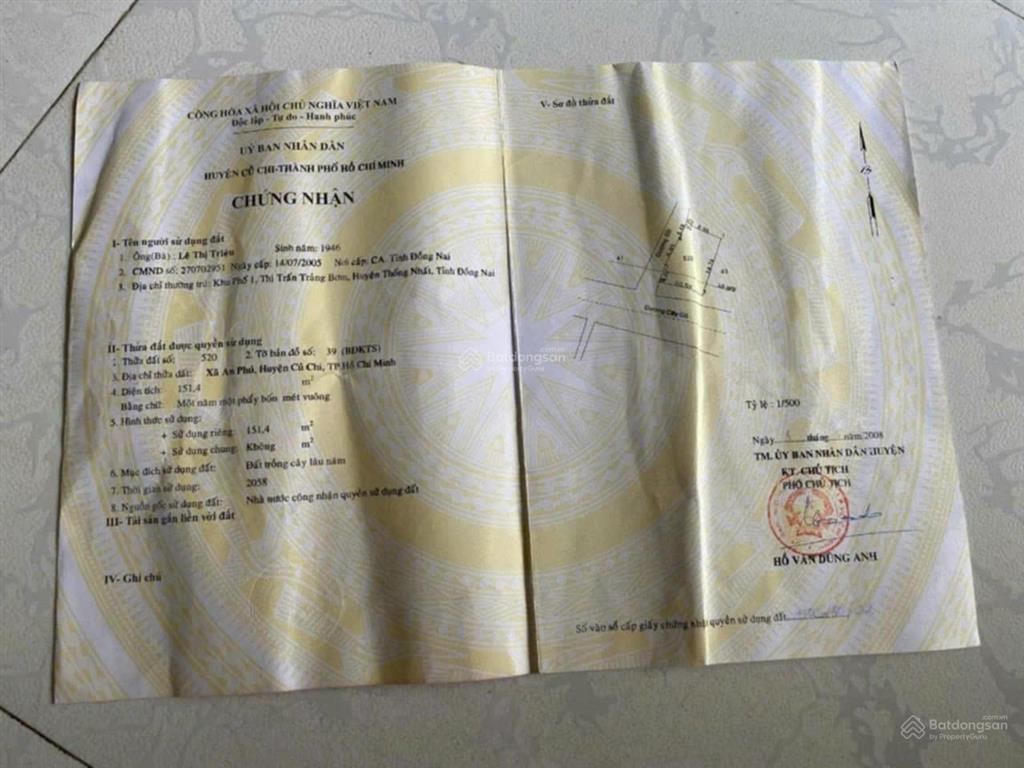 CỘNG HÒA XÃ HỘI CHỦ NGHĨA VIỆT NAM
Độc lập - Tự do - Hạnh phúc
UỶ BAN NHÂN DÂN
HUYỆN CỦ CHI-THÀNH PHỐ HỒ CHÍ MINH
CHỨNG NHẬN
I- Tên người sử dụng đất
1. Ông(Bà) : Lê Thị Triệu Sinh năm: 1946
2. CMND số: 270702951 Ngày cấp: 14/07/2005 Nơi cấp: CA. Tỉnh Đồng Nai
3. Địa chỉ thường trú: Khu Phố 1, Thị Trấn Trảng Bom, Huyện Thống Nhất, Tỉnh Đồng Nai
II- Thửa đất được quyền sử dụng
1. Thửa đất số: 520 2. Tờ bản đồ số: 39 (BĐKTS)
3. Địa chỉ thửa đất: Xã An Phú, Huyện Củ Chi, TP Hồ Chí Minh
4. Diện tích: 151,4 m2
Bằng chữ: Một năm một phẩy bốn mét vuông
5. Hình thức sử dụng:
+ Sử dụng riêng: 151,4 m2
+ Sử dụng chung: Không m2
6. Mục đích sử dụng đất: Đất trồng cây lâu năm
7. Thời gian sử dụng: 2058
8. Nguồn gốc sử dụng đất: Nhà nước công nhận quyền sử dụng đất
III- Tài sản gắn liền với đất
IV- Ghi chú
V- Sơ đồ thửa đất
B
Đường
520
41
Đường Cây Gõ
Tỷ lệ : 1/500
Ngày tháng năm/2008
TM. ỦY BAN NHÂN DÂN HUYỆN
KT. CHỦ TỊCH
PHÓ CHỦ TỊCH
HỒ VĂN DŨNG ANH
Số vào sổ cấp giấy chứng nhận quyền sử dụng đất
Batdongsan.com.vn
by PropertyGuru
Batdongsan.com.vn
by PropertyGuru